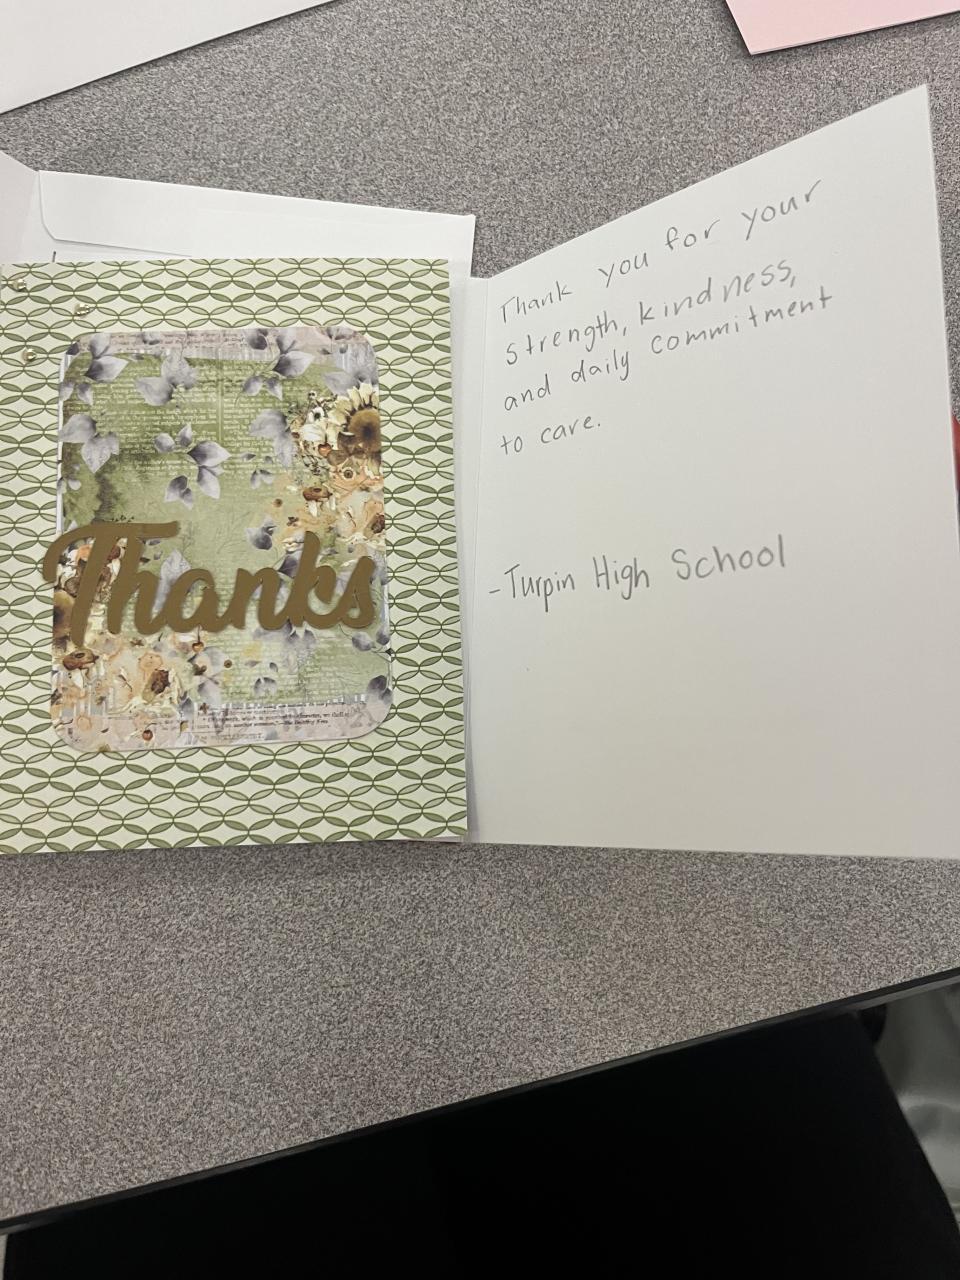 Thanks
Thank you for your
strength, kindness,
and daily commitment
to care.
-Turpin High School